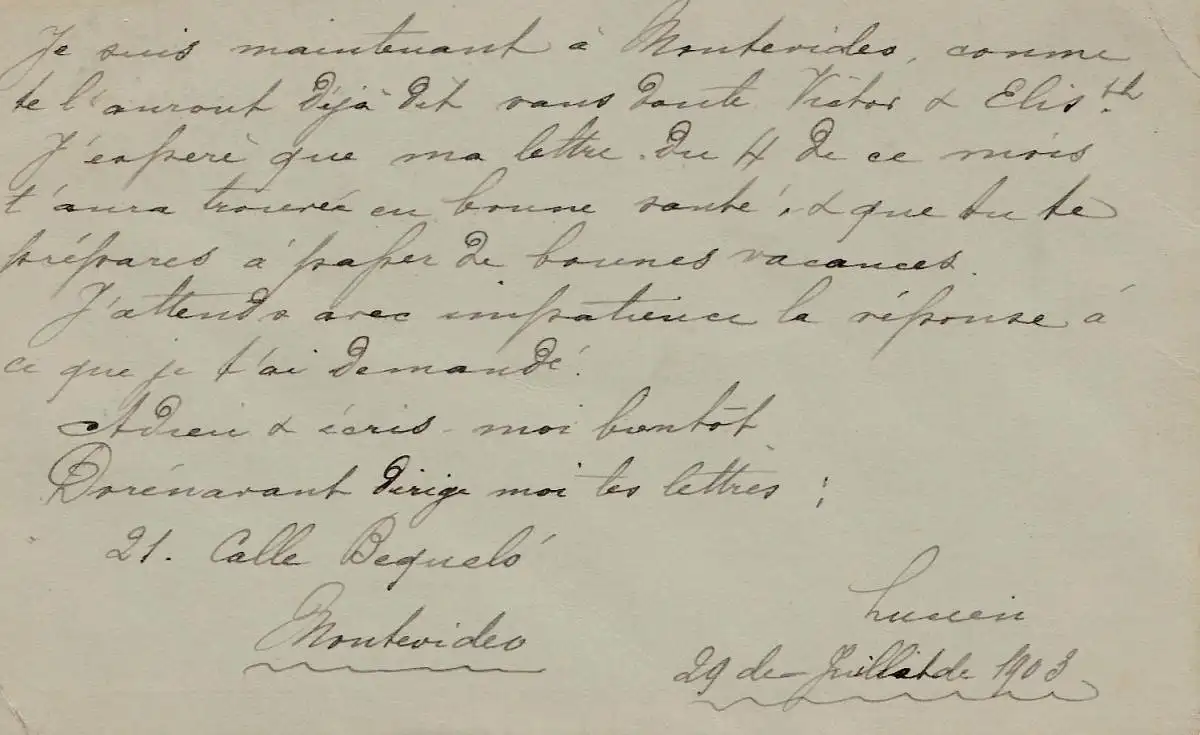 Je suis maintenant à Montevideo, comme
te l'auront déjà dit sans doute Victor & Elis.th
J'espère que ma lettre du 4 de ce mois
t'aura trouvée en bonne santé, & que tu te
prépares à passer de bonnes vacances.
J'attends avec impatience la réponse à
ce que je t'ai demandé.
Adieu & écris-moi bientôt
Dorénavant dirige moi tes lettres :
21. Calle Bequeló
Montevideo
Lucien
29 de Juillet de 1903